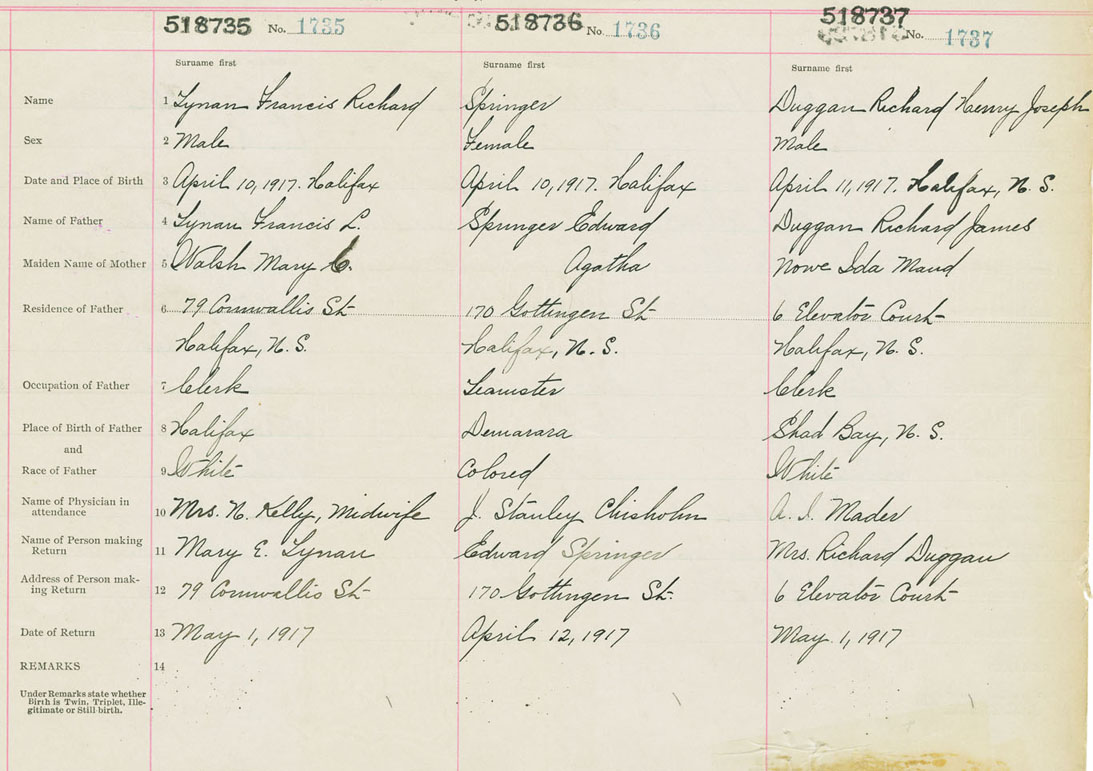 518735 No. 1735 518736 No. 1736 518737 No. 1737
Surname first Surname first Surname first
Name 1 Lynan Francis Richard Springer Duggan Richard Henry Joseph
Sex 2 Male Female Male
Date and Place of Birth 3 April 10, 1917. Halifax April 10, 1917. Halifax April 11, 1917. Halifax, N.S.
Name of Father 4 Lynan Francis L. Springer Edward Duggan Richard James
Maiden Name of Mother 5 Walsh Mary C. Agatha Nowe Ida Maud
Residence of Father 6 79 Cornwallis St 170 Gottingen St 6 Elevator Court
Halifax, N.S. Halifax, N.S. Halifax, N.S.
Occupation of Father 7 Clerk Teamster Clerk
Place of Birth of Father 8 Halifax Demarara Shad Bay, N.S.
and
Race of Father 9 White Colored White
Name of Physician in
attendance 10 Mrs. N. Kelly, Midwife J. Stanley Chisholm A. I. Mader
Name of Person making
Return 11 Mary E. Lynan Edward Springer Mrs. Richard Duggan
Address of Person mak-
ing Return 12 79 Cornwallis St 170 Gottingen St. 6 Elevator Court
Date of Return 13 May 1, 1917 April 12, 1917 May 1, 1917
REMARKS 14
Under Remarks state whether
Birth is Twin, Triplet, Ille-
gitimate or Still-birth.